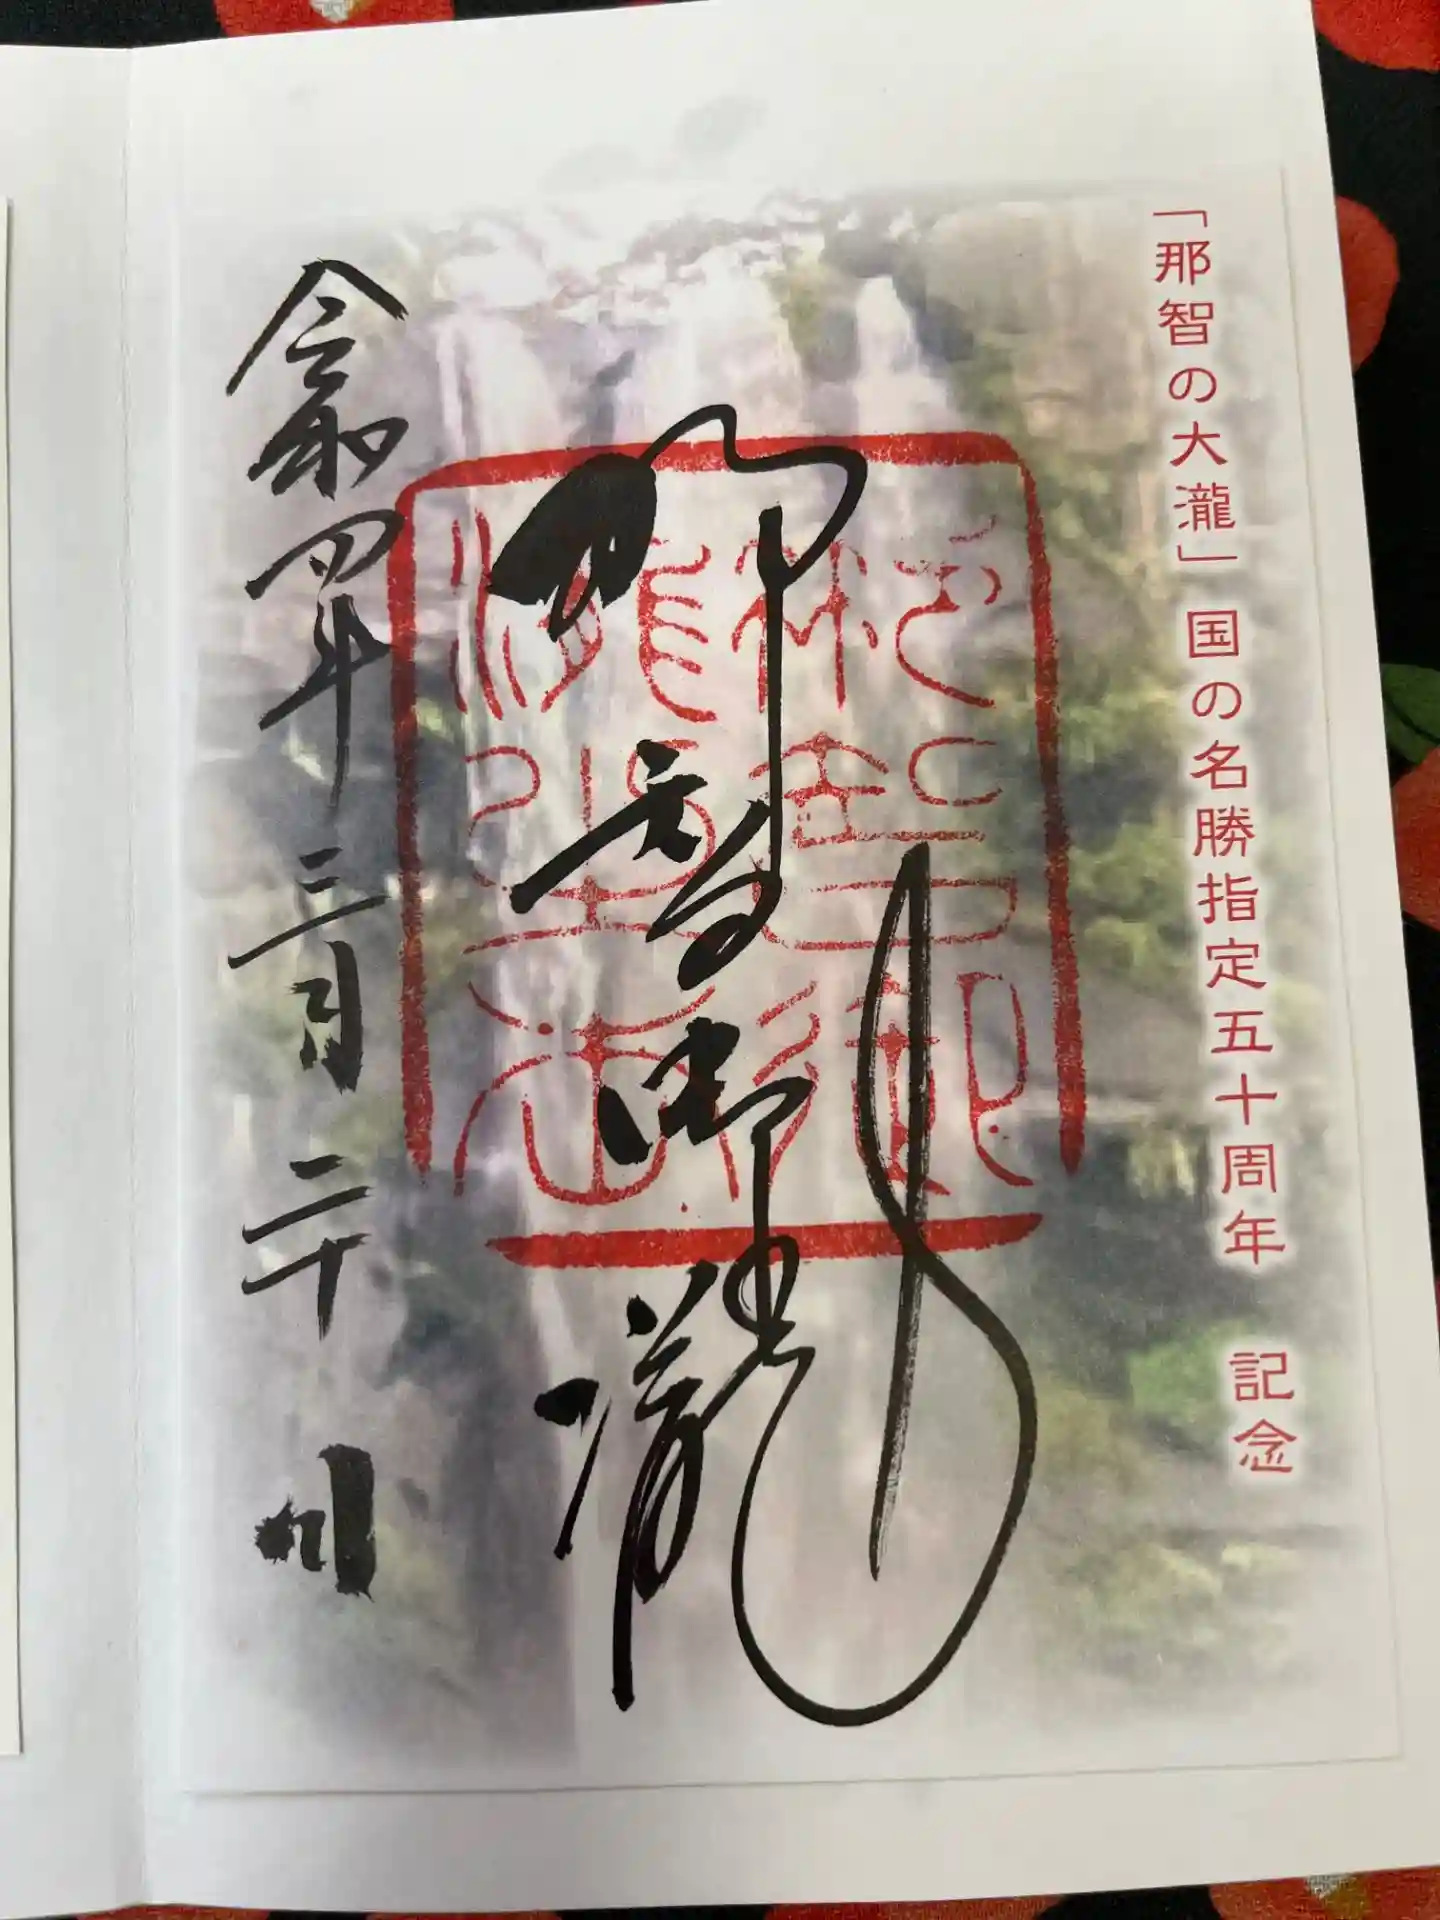 「那智の大瀧」国の名勝指定五十周年 記念
那智御瀧
令和四年三月二十日